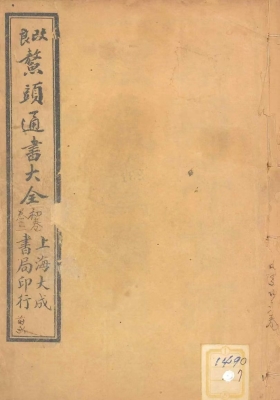 改良
鰲頭通書大全
上海大成
書局印行
1490
7